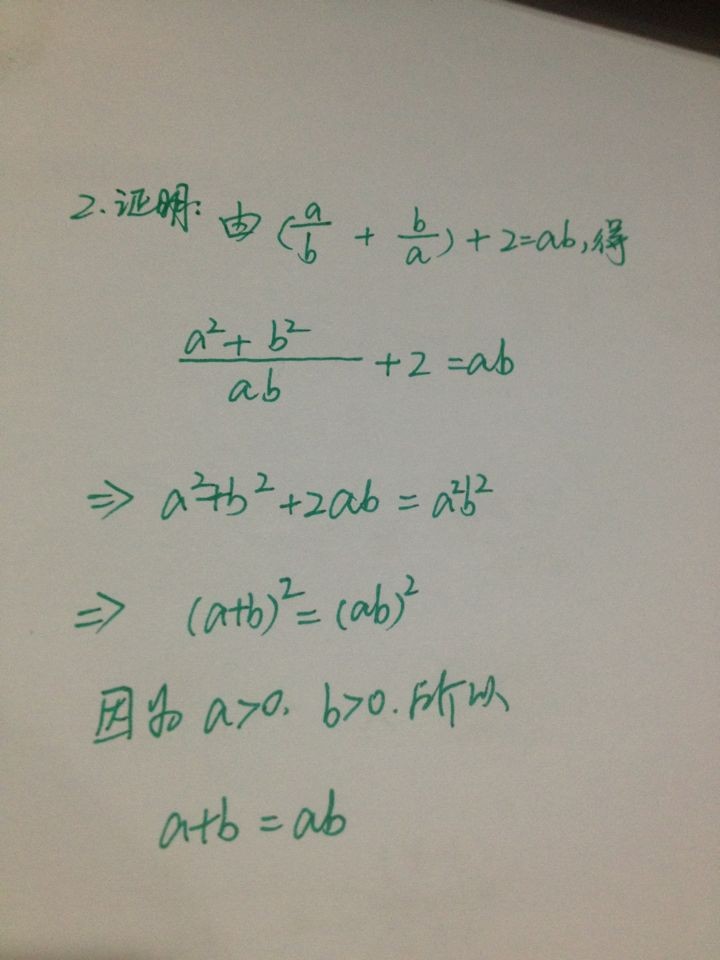 2.证明: 由 (a/b + b/a) + 2 = ab, 得
(a² + b²)/(ab) + 2 = ab
⇒ a² + b² + 2ab = a²b²
⇒ (a+b)² = (ab)²
因为 a>0, b>0. 所以
a+b = ab